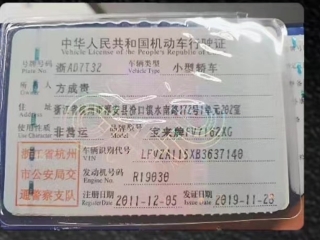 中华人民共和国机动车行驶证
Vehicle License of the People's Republic of China
号牌号码 浙AD7T32 车辆类型 小型轿车
Plate No. Vehicle Type
所有人 方成贵
住址 浙江省杭州市淳安县汾口镇水南路172号1单元202室
使用性质 非营运 品牌型号 宝来牌FV7162XG
Use Character Model
浙江省杭州 车辆识别代号 LFV2A11SXB3637140
VIN
市公安局交 发动机号码 R19030
Engine No.
通警察支队 注册日期 2011-12-05 发证日期 2019-11-26
Register Date Issue Date